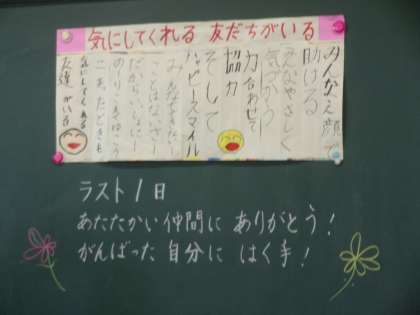 気にしてくれる 友だちがいる
みんなえ顔で
助ける
みんなやさしく
気づかう
力合わせて
協力
そして
ハッピースマイル
みんながきたいし
ことはないさー
だからいじょー
のーりこえてゆこう
こまったときも
気にしてくれる
友達がいる
ラスト1日
あたたかい仲間に ありがとう!
がんばった 自分に はく手!